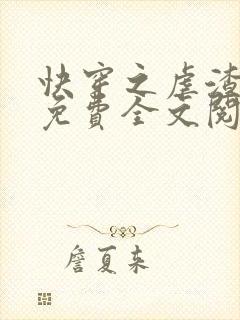 快穿之虐渣
免費全文閱
詹夏来